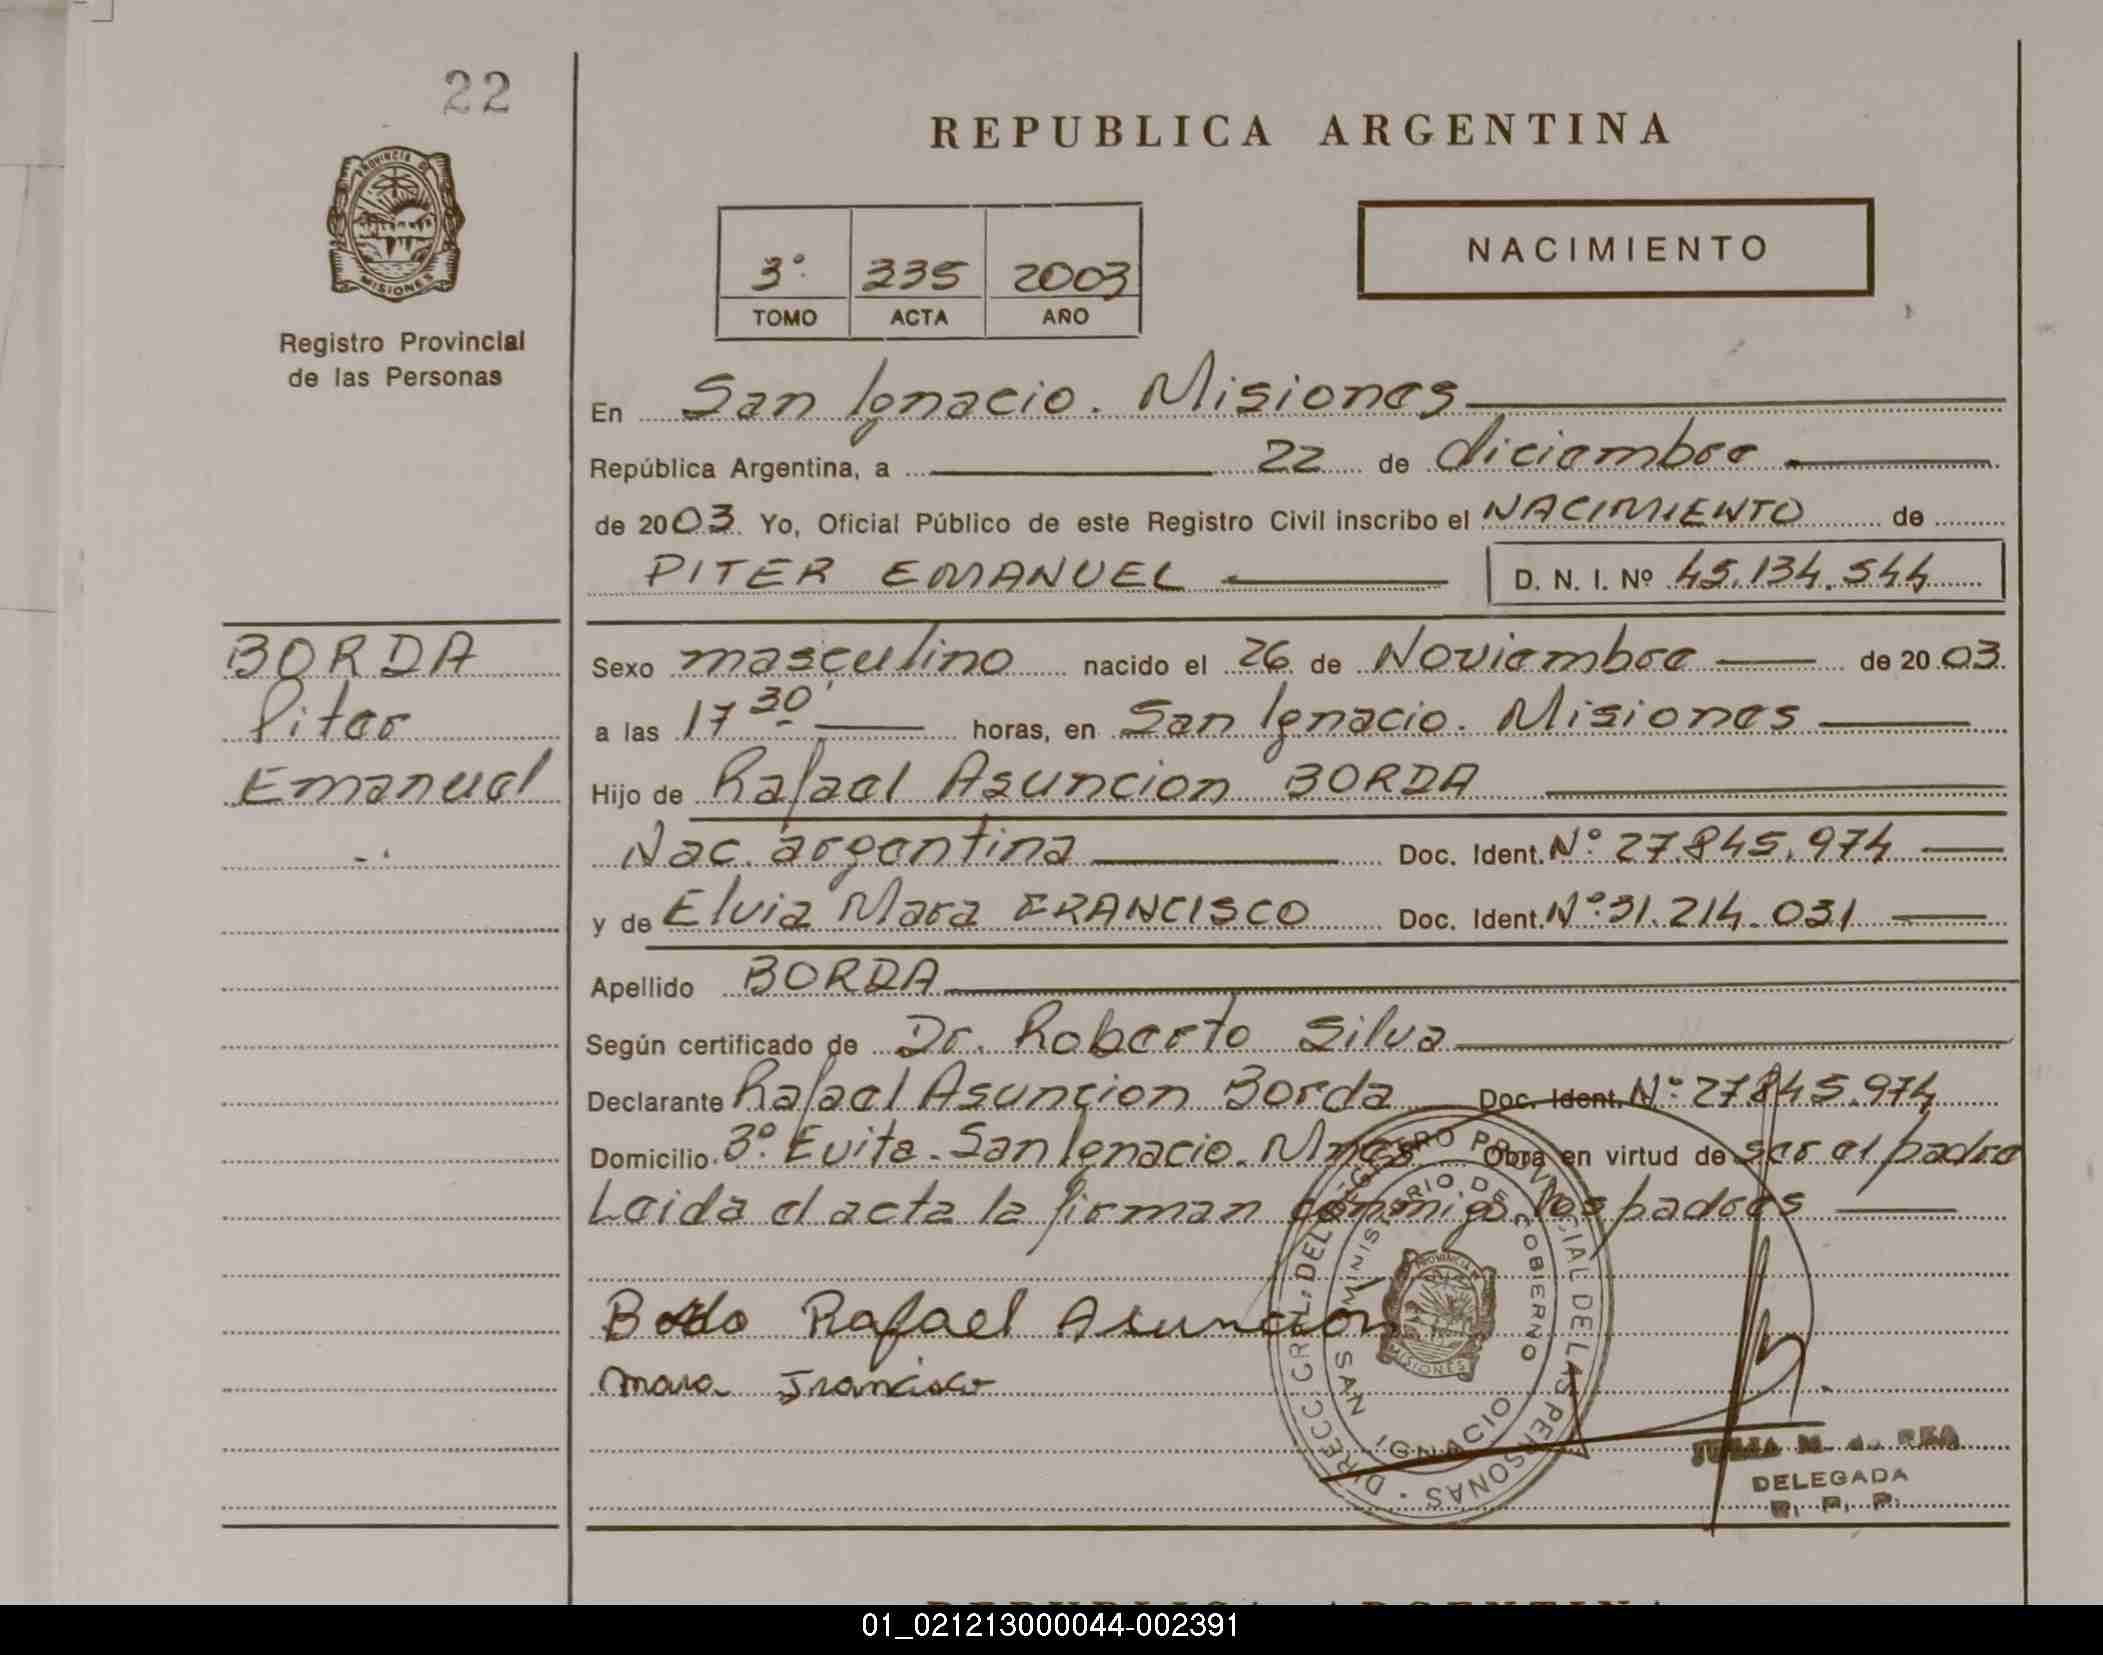 22
PROVINCIA DE
MISIONES
Registro Provincial
de las Personas
REPUBLICA ARGENTINA
3° 335 2003
TOMO ACTA AÑO
NACIMIENTO
En San Ignacio. Misiones
República Argentina, a 22 de diciembre
de 2003. Yo, Oficial Público de este Registro Civil inscribo el NACIMIENTO de
PITER EMANUEL D. N. I. Nº 45.134.544
BORDA
Piter
Emanuel
Sexo masculino nacido el 26 de Noviembre de 2003.
a las 17 30' horas, en San Ignacio. Misiones
Hijo de Rafael Asuncion BORDA
Nac. argentina Doc. Ident. N° 27.845.974
y de Elvia Mara FRANCISCO Doc. Ident. N° 31.214.031
Apellido BORDA
Según certificado de Dr. Roberto Silva
Declarante Rafael Asunçion Borda Doc. Ident. N° 27.845.974
Domicilio 3° Evita - San Ignacio. Mnes Obra en virtud de ser el padre
Leida el acta la firman conmigo los padres
Rafael Asuncion
Mara Francisco
DIRECC. GRL. DEL REGISTRO PROVINCIAL DE LAS PERSONAS
MINISTERIO DE GOBIERNO
SAN IGNACIO
PROVINCIA
MISIONES
DELEGADA
R. P. P.
REPUBLICA ARGENTINA
01_021213000044-002391